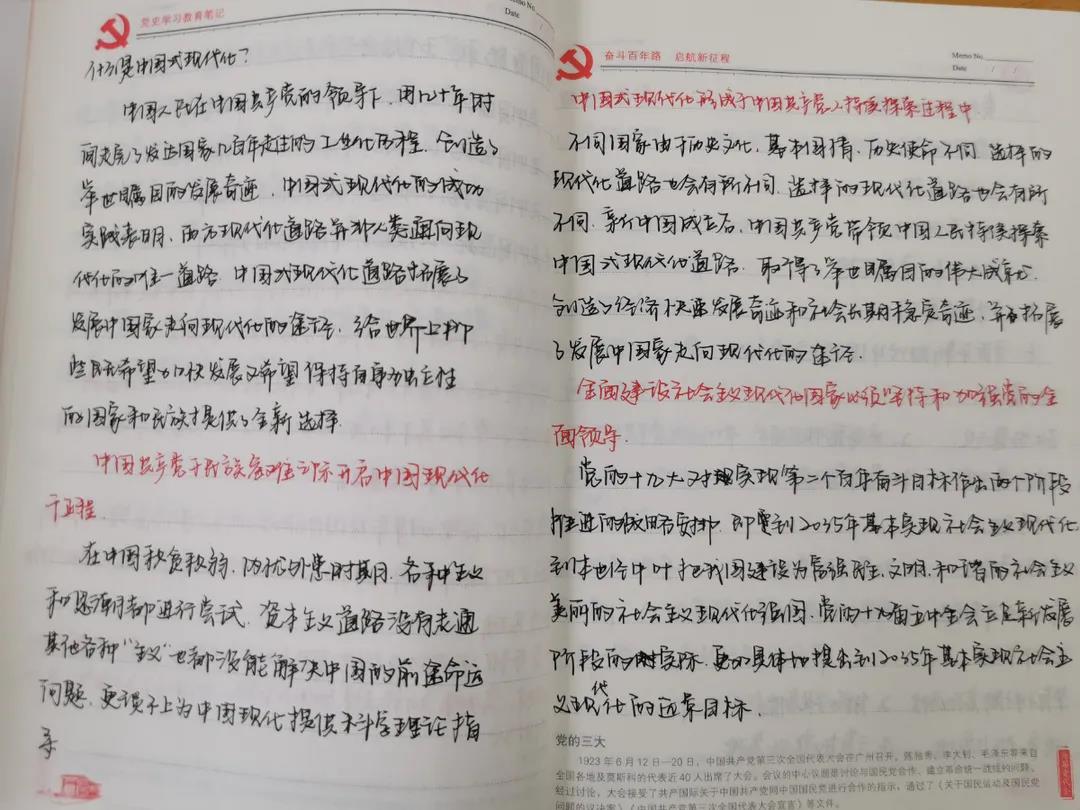 党史学习教育笔记
Memo No.
Date
什么是中国式现代化？
中国人民在中国共产党的领导下，用几十年时
间走完了发达国家几百年走过的工业化历程，创造了
举世瞩目的发展奇迹，中国式现代化的成功
实践表明，西方现代化道路并非人类通向现
代化的唯一道路，中国式现代化道路拓展了
发展中国家走向现代化的途径，给世界上那
些既希望加快发展又希望保持自身独立性
的国家和民族提供了全新选择.
中国共产党于民族危难之际开启中国现代化
征程.
在中国积贫积弱、内忧外患时期，各种主义
和思潮都进行尝试，资本主义道路没有走通
其他各种“主义”也都没能解决中国的前途命运
问题，更谈不上为中国现代提供科学理论指
导
奋斗百年路 启航新征程
Memo No.
Date / /
中国式现代化形成于中国共产党人持续探索过程中
不同国家由于历史文化、基本国情、历史使命不同，选择的
现代化道路也会有所不同，选择的现代化道路也会有所
不同，新中国成立后，中国共产党带领中国人民持续探索
中国式现代化道路，取得了举世瞩目的伟大成就，
创造了经济快速发展奇迹和社会长期稳定奇迹，并且拓展
了发展中国家走向现代化的途径.
全面建设社会主义现代化国家必须坚持和加强党的全
面领导.
党的十九大对实现第二个百年奋斗目标作出两个阶段
推进的战略安排，即到2035年基本实现社会主义现代化
到本世纪中叶把我国建设为富强民主、文明、和谐的社会主义
美丽的社会主义现代化强国，党的十九届五中全会立足新发展
阶段的实际，更加具体地提出到2035年基本实现社会主
义现代化的远景目标.
党的三大
1923年6月12日—20日，中国共产党第三次全国代表大会在广州召开，陈独秀、李大钊、毛泽东等来自
全国各地及莫斯科的代表近40人出席了大会。会议的中心议题是讨论与国民党合作、建立革命统一战线的问题。
经过讨论，大会接受了共产国际关于中国共产党同中国国民党进行合作的指示，通过了《关于国民运动及国民党
问题的议决案》《中国共产党第三次全国代表大会宣言》等文件。